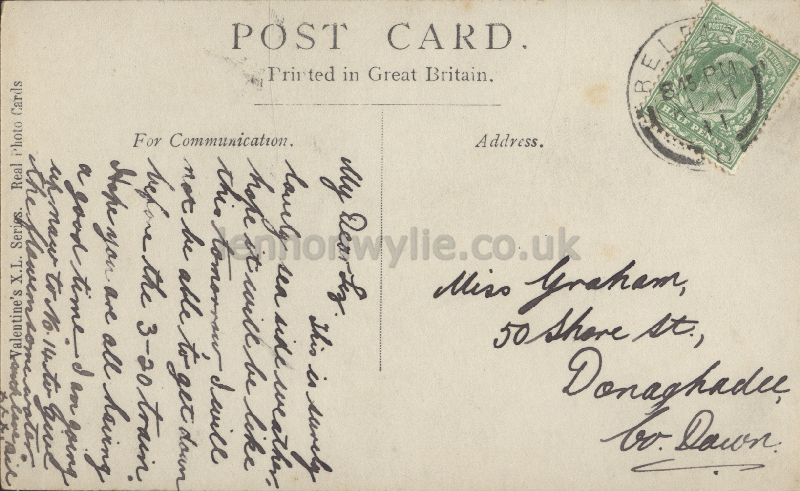 POST CARD.
Printed in Great Britain.
For Communication.
Address.
Valentine's X.L. Series. Real Photo Cards
BELFA
8.45 PM
11
HALF PENNY
My Dear Liz.
This is surely
lovely sea side weather.
hope it will be like
this tomorrow I will
not be able to get down
before the 3-20 train.
Hope you are all having
a good time. I am going
up now to No. 14 to give
the flowers some water.
Miss Graham,
50 Shore St.,
Donaghadee,
Co. Down.
lennonwylie.co.uk